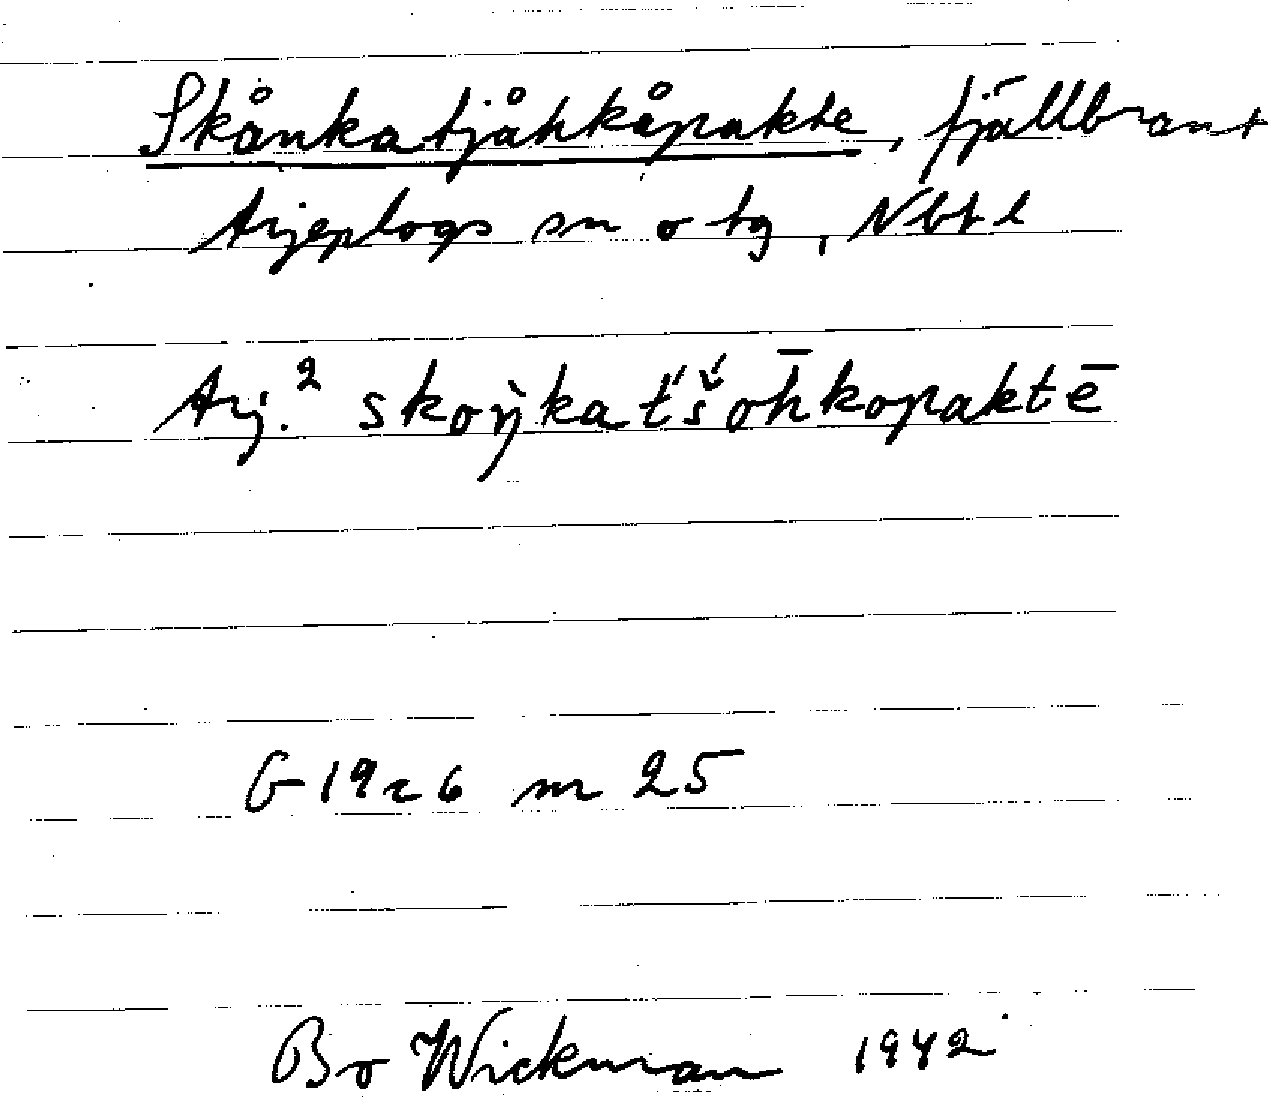 Skånkatjåhkåpakte, fjällbrant
Arjeplogs sn o tg, Nbt l
Arj.² skoŋ̀kat́šohkopaktē
G 19 c 6 m 25
Bo Wickman 1942